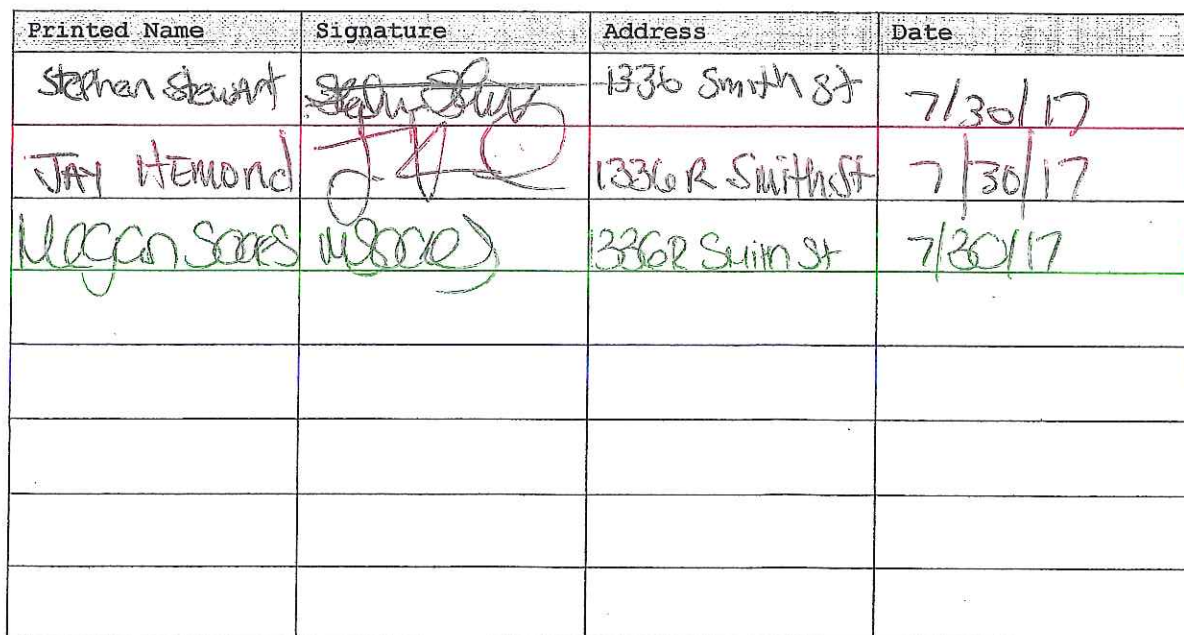 Printed Name Signature Address Date
Stephen Stewart 1336 Smith St 7/30/17
JAY HEMOND 1336 R Smith St 7/30/17
Megan Soares MSoares 1336R Smith St 7/30/17